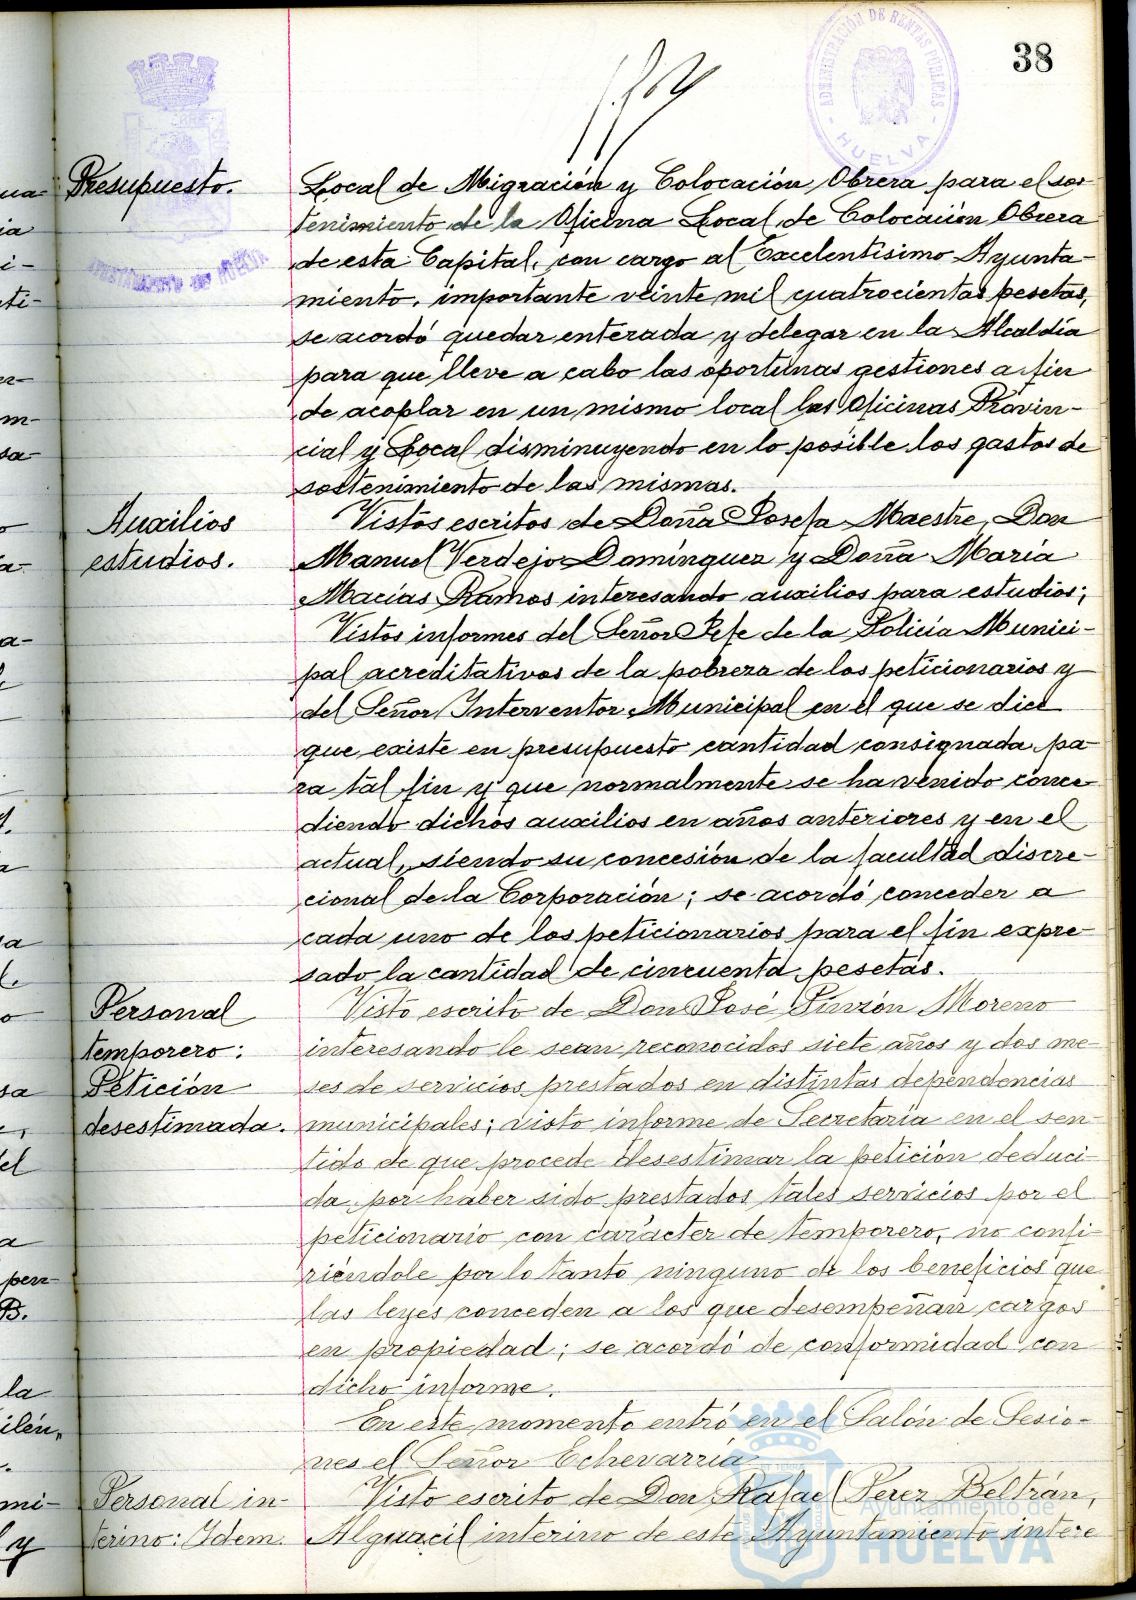 38
ADMINISTRACIÓN DE RENTAS PÚBLICAS
HUELVA
AYUNTAMIENTO DE HUELVA
Presupuesto.
Local de Migración y Colocación Obrera para el sos-
tenimiento de la Oficina Local de Colocación Obrera
de esta Capital, con cargo al Excelentísimo Ayunta-
miento, importante veinte mil cuatrocientas pesetas,
se acordó quedar enterada y delegar en la Alcaldía
para que lleve a cabo las oportunas gestiones a fin
de acoplar en un mismo local las Oficinas Provin-
cial y Local disminuyendo en lo posible los gastos de
sostenimiento de las mismas.
Auxilios
estudios.
Vistos escritos de Doña Josefa Maestre, Don
Manuel Verdejo Domínguez y Doña María
Macías Ramos interesando auxilios para estudios;
Vistos informes del Señor Jefe de la Policía Munici-
pal acreditativos de la pobreza de los peticionarios y
del Señor Interventor Municipal en el que se dice
que existe en presupuesto cantidad consignada pa-
ra tal fin y que normalmente se ha venido conce-
diendo dichos auxilios en años anteriores y en el
actual, siendo su concesión de la facultad discre-
cional de la Corporación; se acordó conceder a
cada uno de los peticionarios para el fin expre-
sado la cantidad de cincuenta pesetas.
Personal
temporero:
Petición
desestimada.
Visto escrito de Don José Pinzón Moreno
interesando le sean reconocidos siete años y dos me-
ses de servicios prestados en distintas dependencias
municipales; visto informe de Secretaría en el sen-
tido de que procede desestimar la petición deduci-
da por haber sido prestados tales servicios por el
peticionario con carácter de temporero, no confi-
riéndole por lo tanto ninguno de los beneficios que
las leyes conceden a los que desempeñan cargos
en propiedad; se acordó de conformidad con
dicho informe.
En este momento entró en el Salón de Sesio-
nes el Señor Echevarría
Personal in-
terino: Idem.
Visto escrito de Don Rafael Pérez Beltrán,
Alguacil interino de este Ayuntamiento intere
Ayuntamiento de
HUELVA